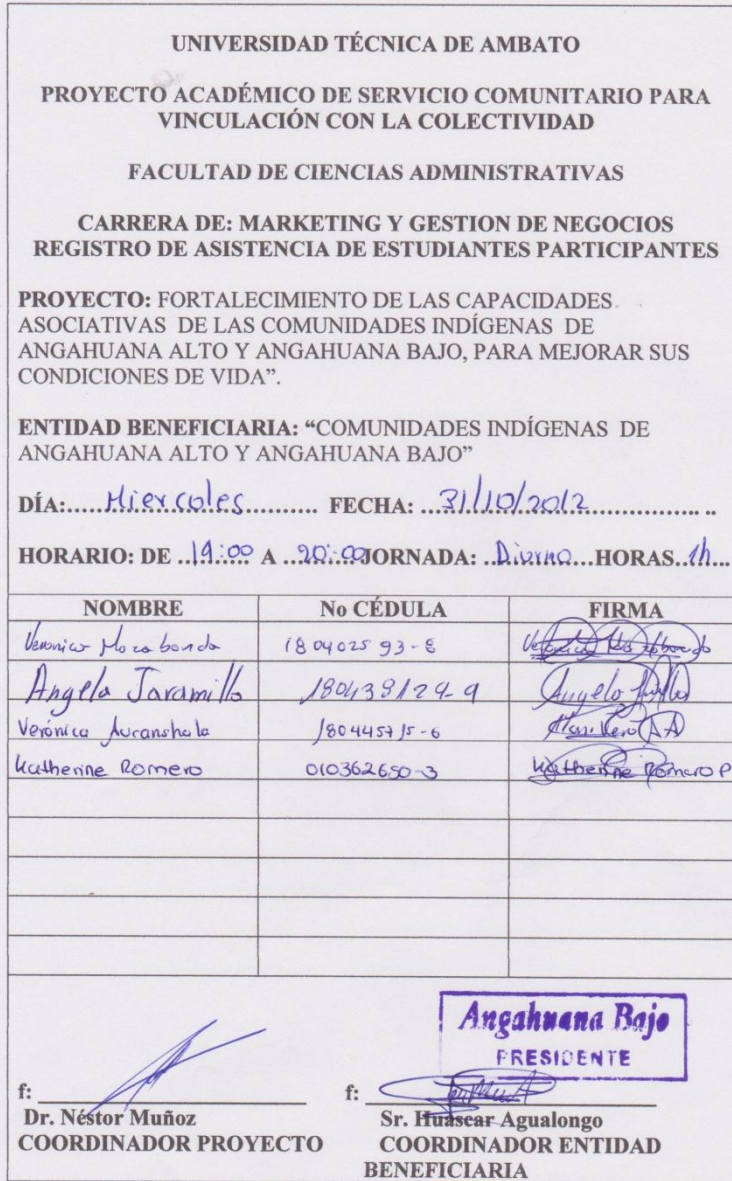 UNIVERSIDAD TÉCNICA DE AMBATO
PROYECTO ACADÉMICO DE SERVICIO COMUNITARIO PARA
VINCULACIÓN CON LA COLECTIVIDAD
FACULTAD DE CIENCIAS ADMINISTRATIVAS
CARRERA DE: MARKETING Y GESTION DE NEGOCIOS
REGISTRO DE ASISTENCIA DE ESTUDIANTES PARTICIPANTES
PROYECTO: FORTALECIMIENTO DE LAS CAPACIDADES
ASOCIATIVAS DE LAS COMUNIDADES INDÍGENAS DE
ANGAHUANA ALTO Y ANGAHUANA BAJO, PARA MEJORAR SUS
CONDICIONES DE VIDA”.
ENTIDAD BENEFICIARIA: “COMUNIDADES INDÍGENAS DE
ANGAHUANA ALTO Y ANGAHUANA BAJO”
DÍA:..... Miercoles .......... FECHA: ... 31/10/2012 ..................
HORARIO: DE ..19:00.... A ..20:00 JORNADA: ..Diurno...HORAS..1h...
NOMBRE No CÉDULA FIRMA
Veronica 180402593-8 Veronica
Angela Jaramillo 180438129-9 Angela
Verónica 180445715-6
Katherine Romero 010362650-3 Katherine Romero P
Angahuana Bajo
PRESIDENTE
f: f:
Dr. Néstor Muñoz Sr. Huasear Agualongo
COORDINADOR PROYECTO COORDINADOR ENTIDAD
BENEFICIARIA